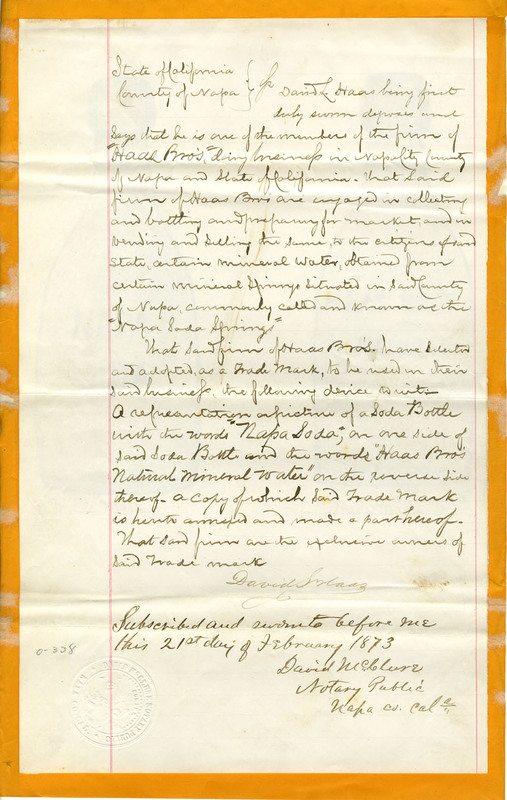 State of California
County of Napa } ss David L Haas being first
duly sworn deposes and
Says that he is one of the members of the firm of
"Haas Bro's," doing business in Napa City County
of Napa and State of California. That Said
firm of Haas Bros are engaged in collecting
and bottling and preparing for market, and in
Vending and Selling the same, to the citizens of said
State, certain mineral Water, obtained from
certain mineral Springs Situated in Said County
of Napa, commonly called and known as the
"Napa Soda Springs"
That Said firm of Haas Bro's, have selected
and adopted, as a Trade Mark, to be used in their
Said business, the following device to wit:
A representation or picture of a Soda Bottle
with the words "Napa Soda", on one side of
Said Soda Bottle and the words "Haas Bro's
Natural Mineral Water" on the reverse Side
thereof. A copy of which Said Trade Mark
is hereto annexed and made a part hereof.
That Said firm are the exclusive owners of
Said Trade mark
David L Haas
Subscribed and sworn to before me
this 21st day of February 1873
David McClure
Notary Public
Napa Co. Cal
0-328